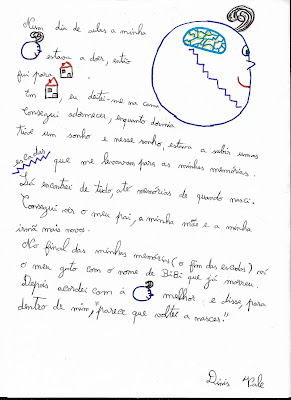 Num dia de aulas a minha
estava a doer, então
fui para .
Em , eu deitei-me na cama
Consegui adormecer, enquanto dormia
tive um sonho e nesse sonho, estava a subir umas
escadas que me levavam para as minhas memórias.
Lá encontrei de tudo, até memórias de quando nasci.
Consegui ver o meu pai, a minha mãe e a minha
irmã mais nova.
No final das minhas memórias (o fim das escadas) vi
o meu gato com o nome de BiBi que já morreu.
Depois acordei com a melhor e disse, para
dentro de mim, "parece que voltei a nascer."
Dinis Vale